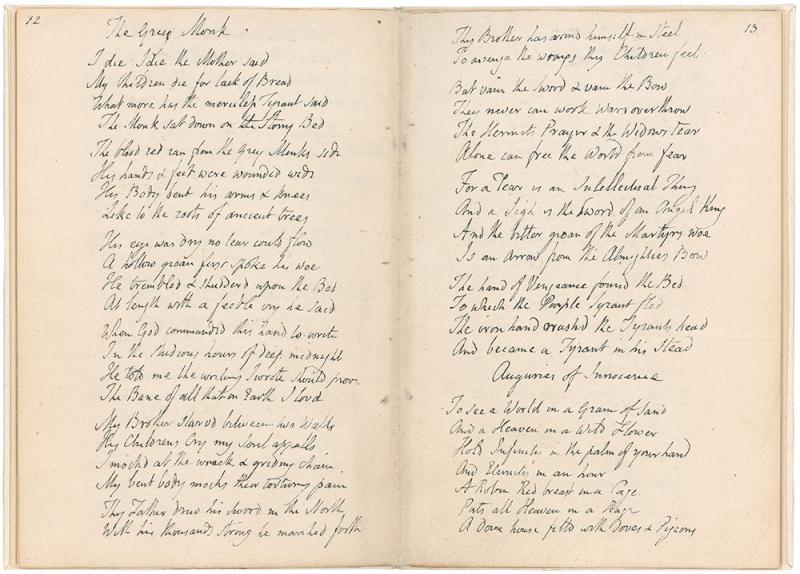 12
The Grey Monk
I die I die the Mother said
My Children die for lack of Bread
What more has the merciless Tyrant said
The Monk sat down on the Stony Bed
The blood red ran from the Grey Monks side
His hands & feet were wounded wide
His Body bent his arms & knees
Like to the roots of ancient trees
His eye was dry no tear could flow
A hollow groan first spoke his woe
He trembled & shudderd upon the Bed
At length with a feeble cry he said
When God commanded this hand to write
In the studious hours of deep midnight
He told me the writing I wrote should prove
The Bane of all that on Earth I lovd
My Brother starvd between two Walls
His Childrens Cry my Soul appalls
I mockd at the wrack & griding chain
My bent body mocks their torturing pain
Thy Father drew his Sword in the North
With his thousands strong he marched forth
13
Thy Brother has armd himself in Steel
To avenge the wrongs thy Children feel
But vain the Sword & vain the Bow
They never can work Wars overthrow
The Hermits Prayer & the Widows tear
Alone can free the World from fear
For a Tear is an Intellectual Thing
And a Sigh is the Sword of an Angel King
And the bitter groan of the Martyrs woe
Is an Arrow from the Almighties Bow
The hand of Vengeance found the Bed
To which the Purple Tyrant fled
The iron hand crushd the Tyrants head
And became a Tyrant in his Stead
Auguries of Innocence
To see a World in a Grain of Sand
And a Heaven in a Wild Flower
Hold Infinity in the palm of your hand
And Eternity in an hour
A Robin Red breast in a Cage
Puts all Heaven in a Rage
A Dove house filld with Doves & Pigeons